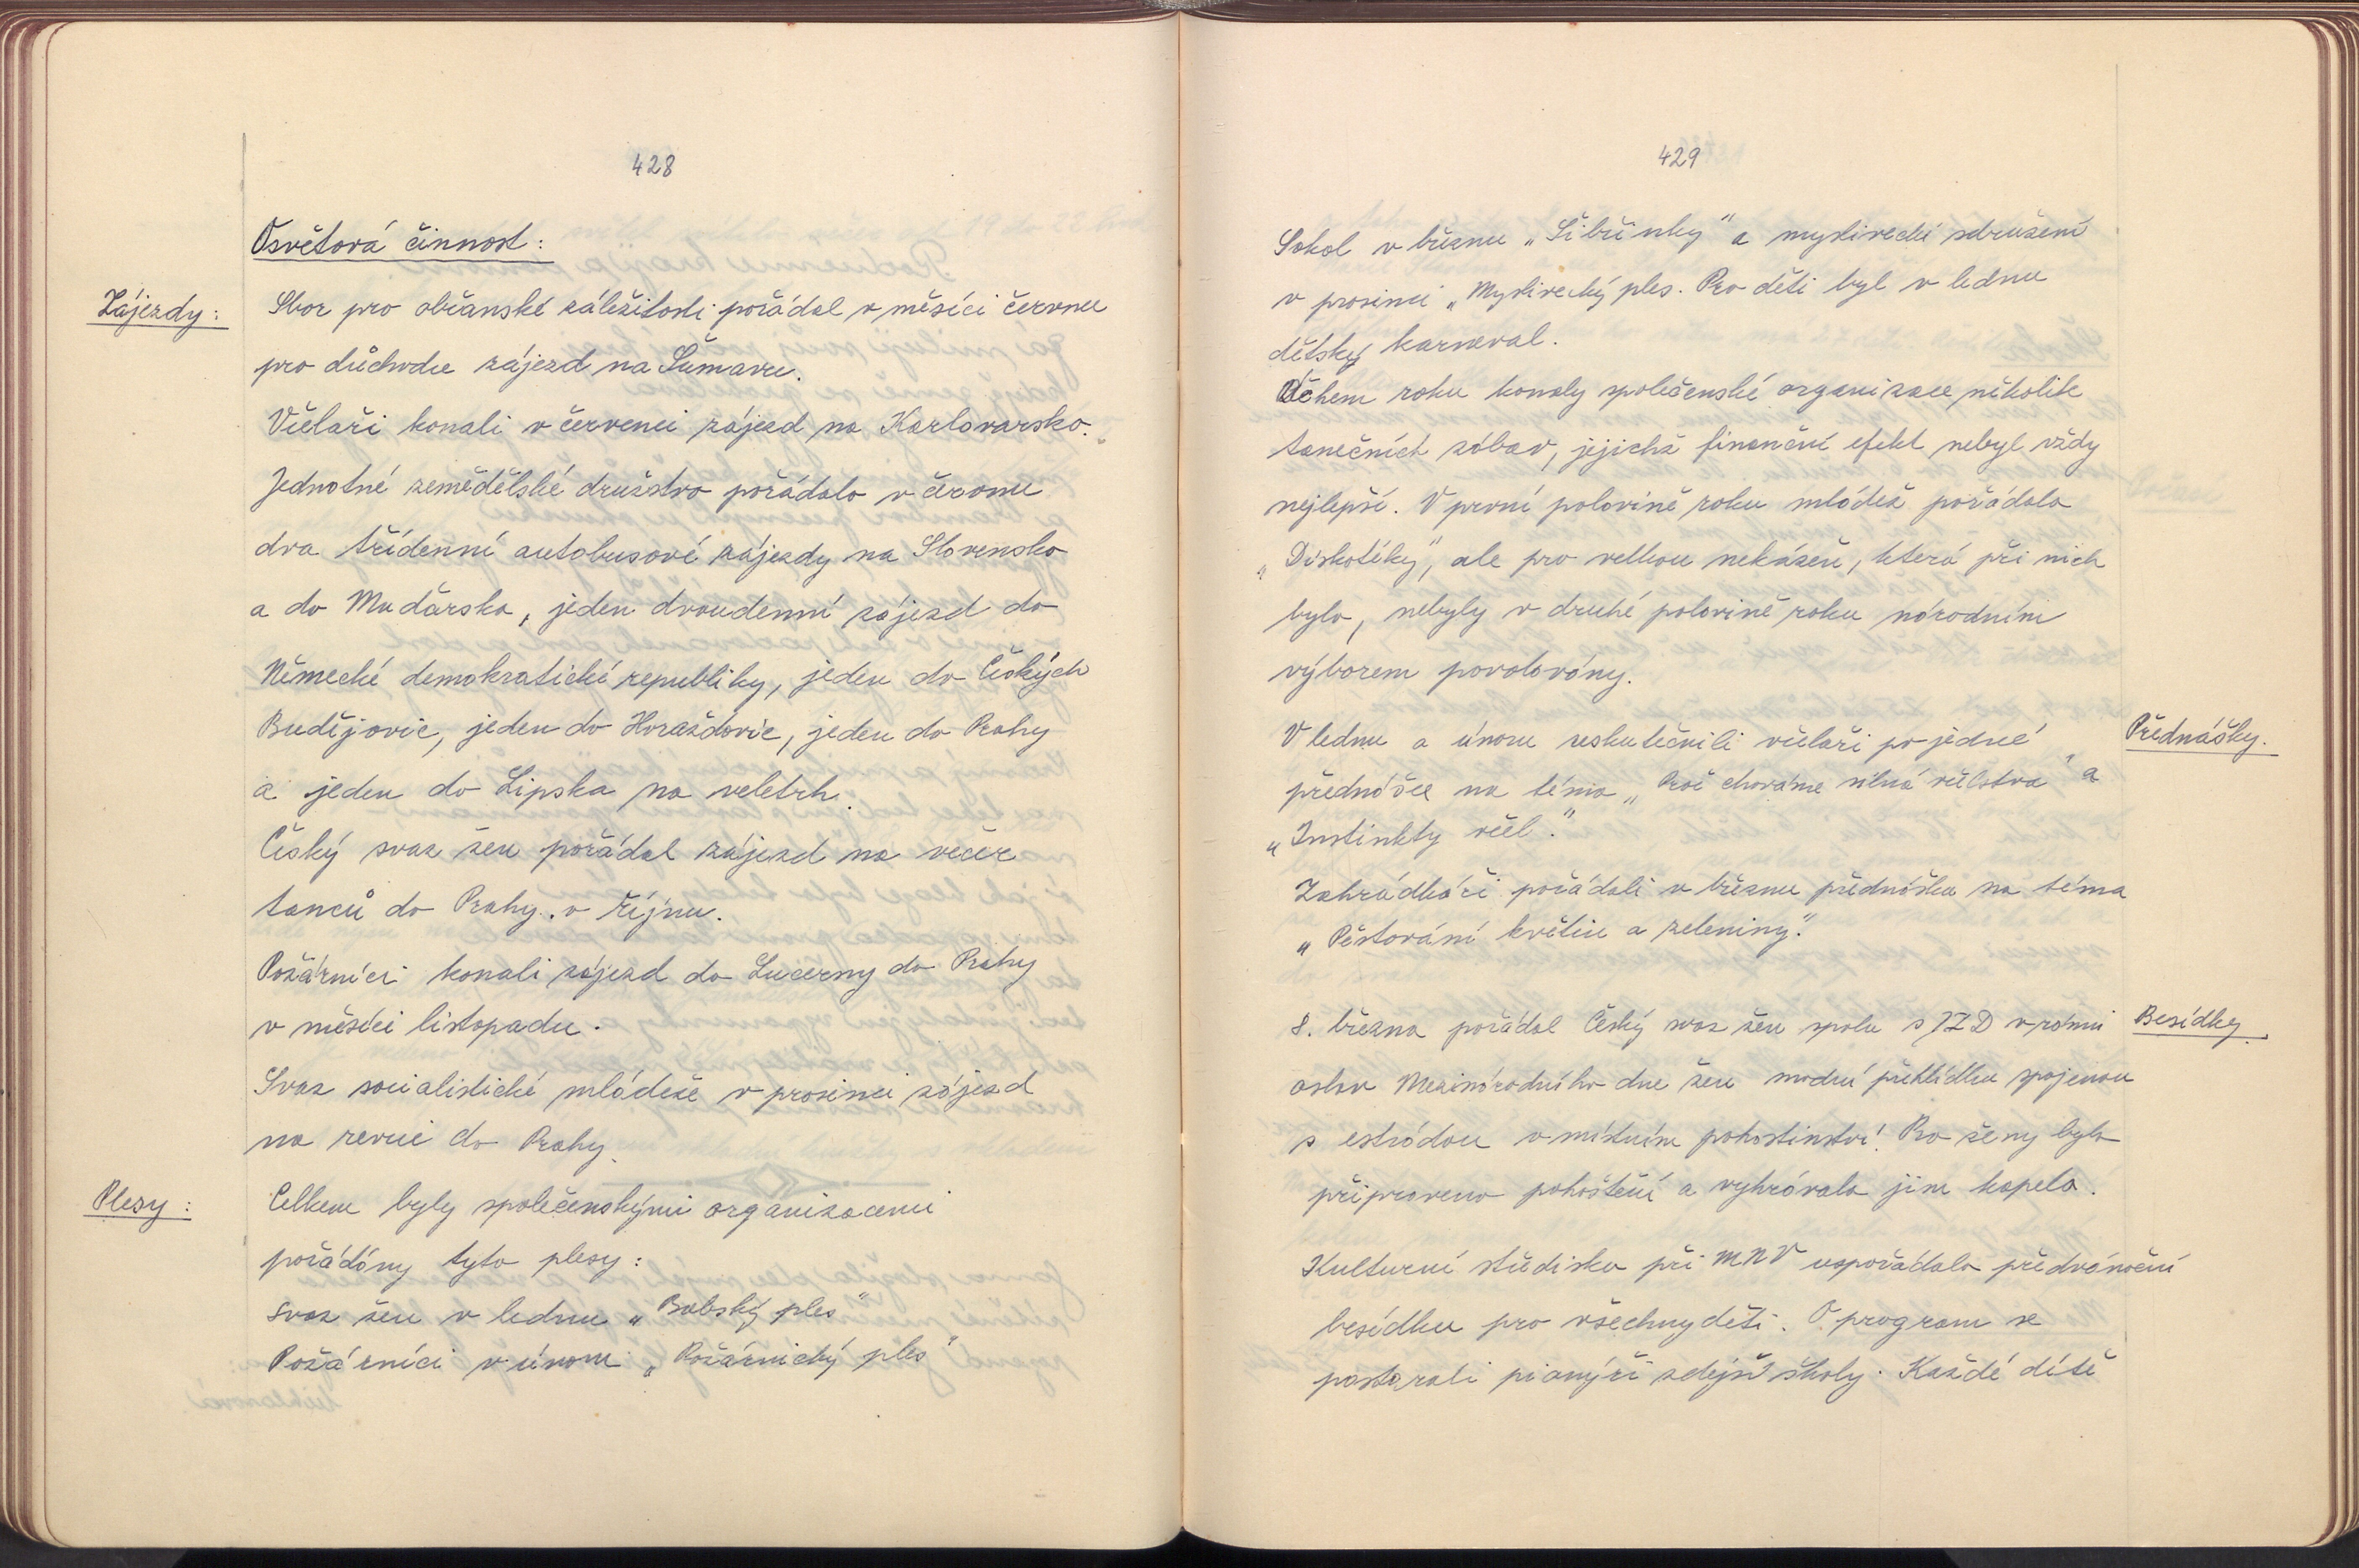 428
Osvětová činnost:
Zájezdy:
Sbor pro občanské záležitosti pořádal v měsíci červnu
pro důchodce zájezd na Šumavu.
Včelaři konali v červenci zájezd na Karlovarsko.
Jednotné zemědělské družstvo pořádalo v červnu
dva třídenní autobusové zájezdy na Slovensko
a do Maďarska, jeden dvoudenní zájezd do
Německé demokratické republiky, jeden do Českých
Budějovic, jeden do Horažďovic, jeden do Prahy
a jeden do Lipska na veletrh.
Český svaz žen pořádal zájezd na večer
tanců do Prahy v říjnu.
Požárníci konali zájezd do Lucerny do Prahy
v měsíci listopadu.
Svaz socialistické mládeže v prosinci zájezd
na revui do Prahy.
Plesy:
Celkem byly společenskými organizacemi
pořádány tyto plesy:
svaz žen v lednu „Babský ples"
Požárníci v únoru „Požárnický ples"
429
Sokol v březnu „Šibřinky" a myslivecké sdružení
v prosinci „Myslivecký ples. Pro děti byl v lednu
dětský karneval.
Během roku konaly společenské organizace několik
tanečních zábav, jejichž finanční efekt nebyl vždy
nejlepší. V první polovině roku mládež pořádala
„Diskotéky", ale pro velkou nekázeň, která při nich
byla, nebyly v druhé polovině roku národním
výborem povolovány.
Přednášky.
V lednu a únoru uskutečnili včelaři po jedné
přednášce na téma „Proč chováme silná včelstva" a
„Instinkty včel."
Zahrádkáři pořádali v březnu přednášku na téma
„Pěstování květin a zeleniny."
Besídky.
8. března pořádal Český svaz žen spolu s JZD v rámci
oslav Mezinárodního dne žen modní přehlídku spojenou
s estrádou v místním pohostinství. Pro ženy bylo
připraveno pohoštění a vyhrávala jim kapela.
Kulturní středisko při MNV uspořádalo předvánoční
besídku pro všechny děti. O program se
postarali pionýři zdejší školy. Každé dítě